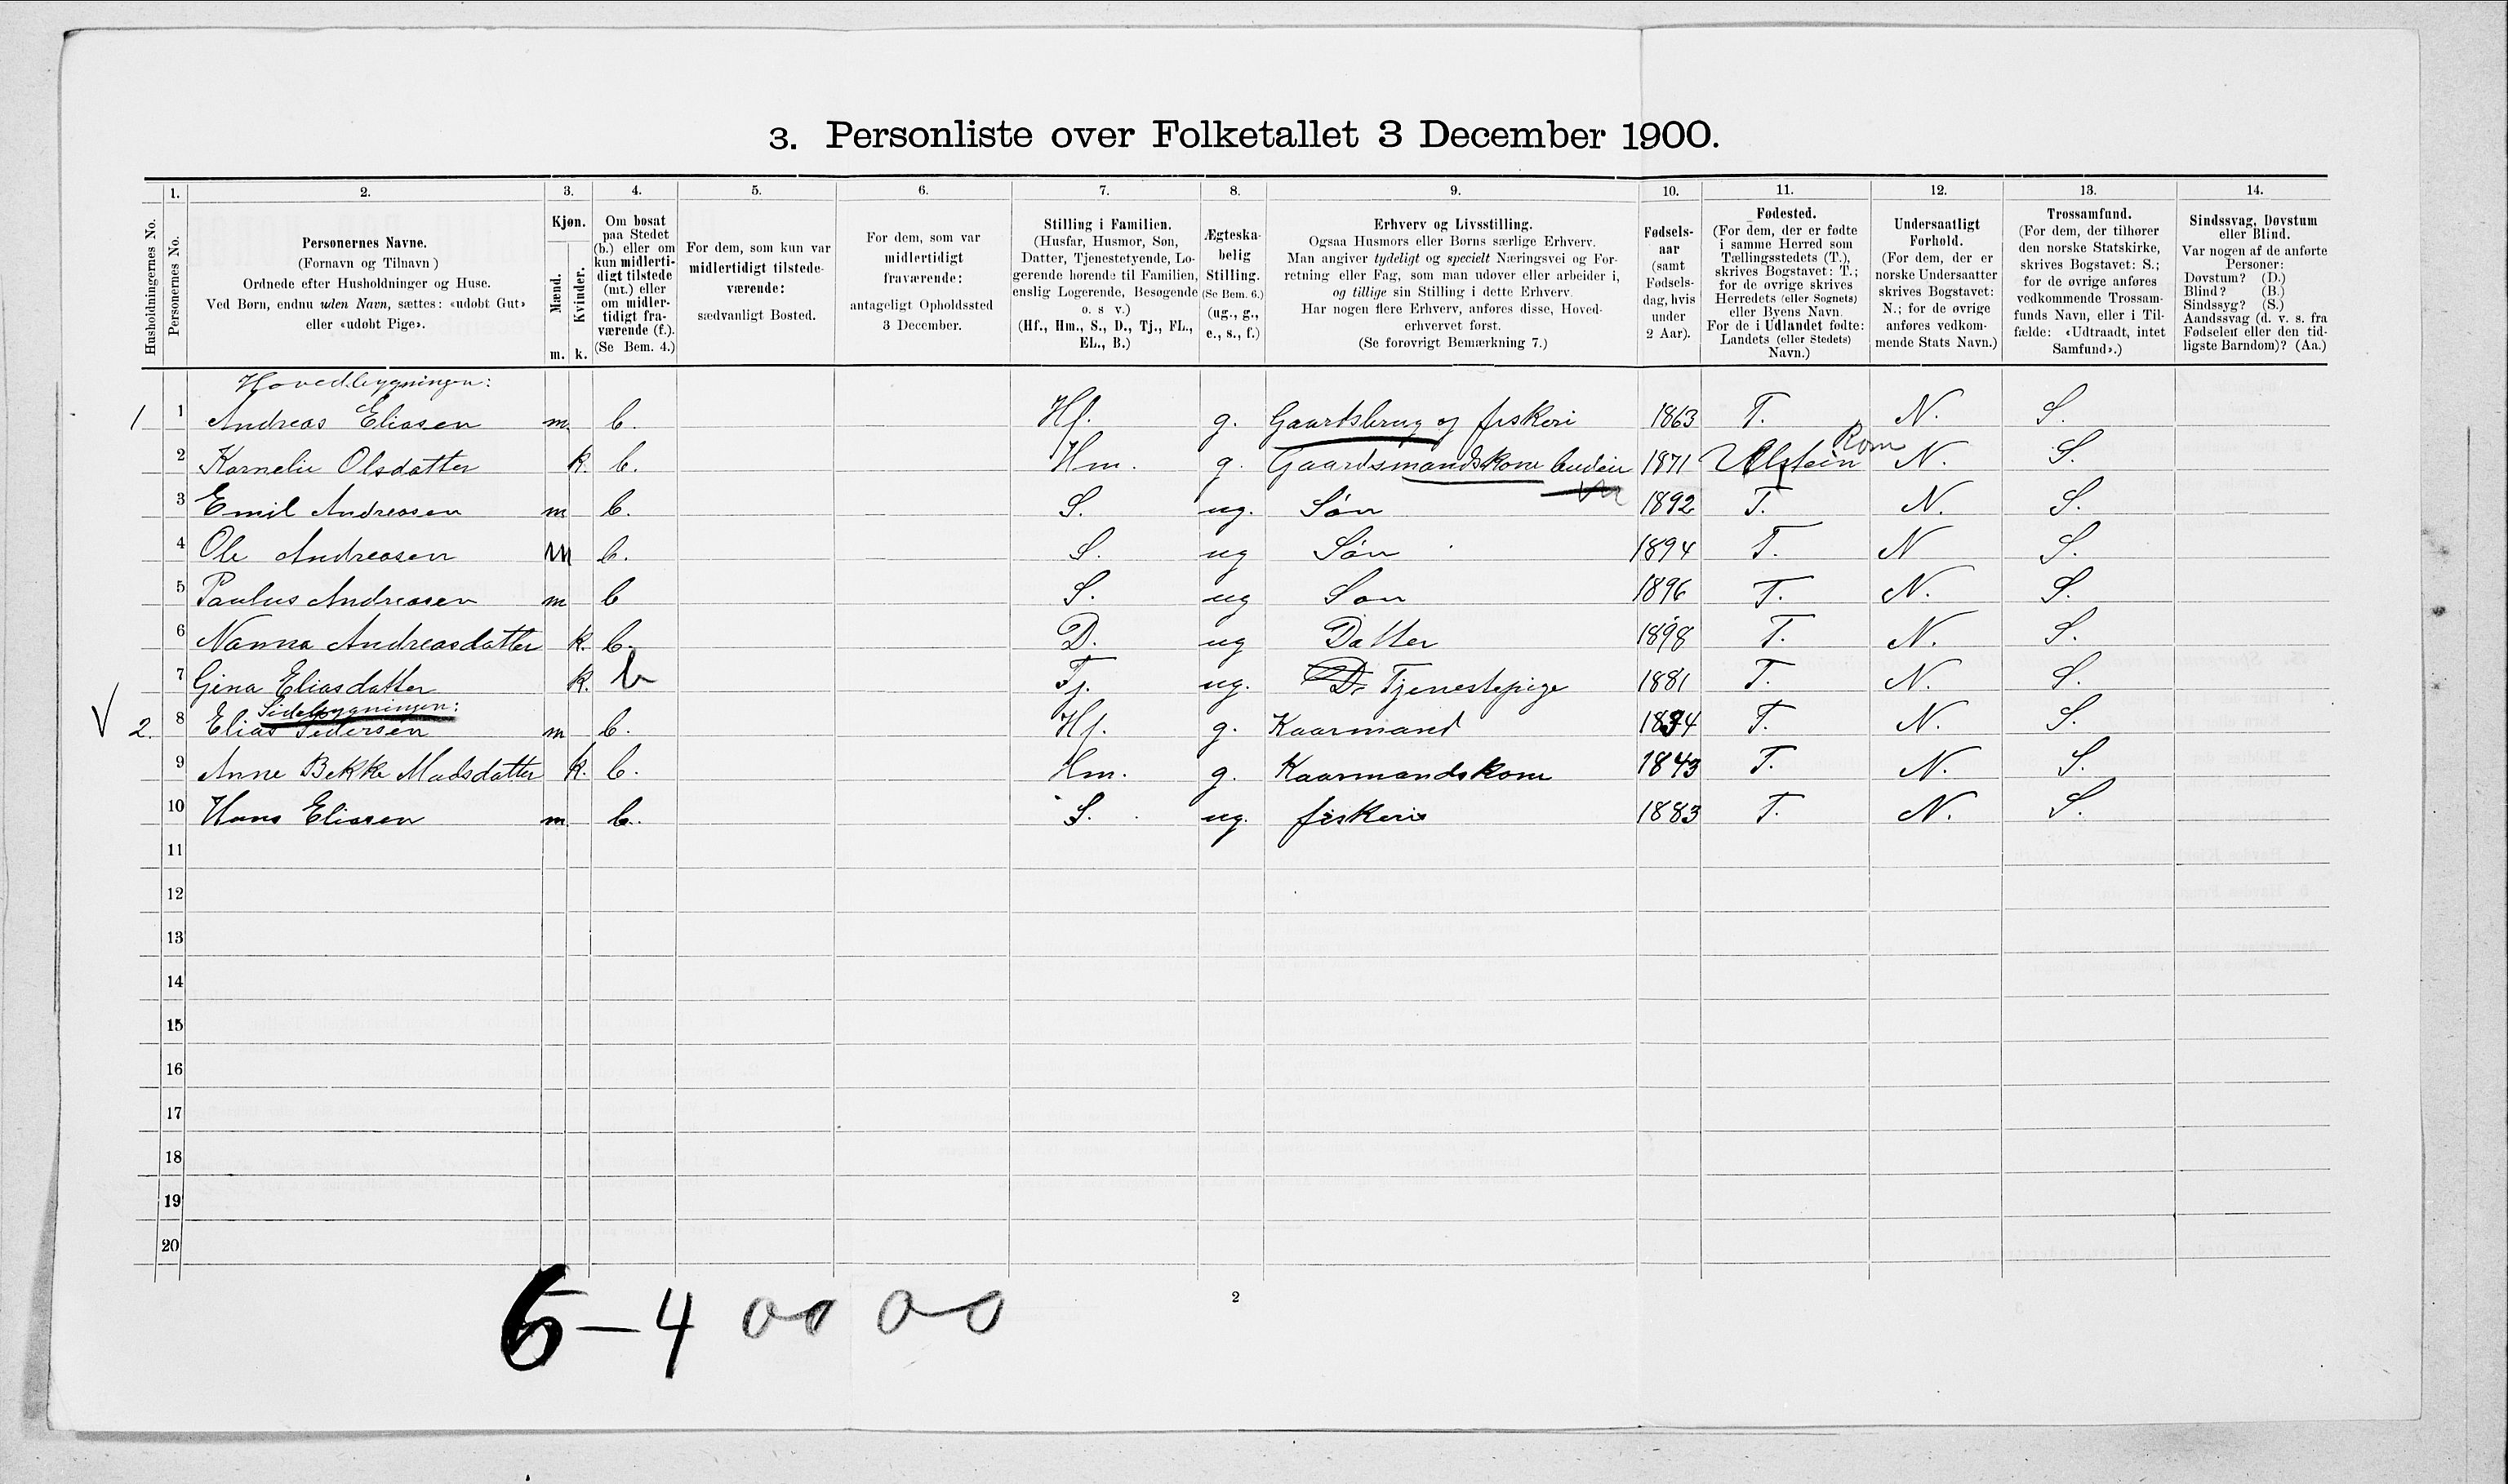 3. Personliste over Folketallet 3 December 1900.
1. 2. 3. 4. 5. 6. 7. 8. 9. 10. 11. 12. 13. 14.
Husholdningernes No.
Personernes No.
Personernes Navne.
(Fornavn og Tilnavn)
Ordnede efter Husholdninger og Huse.
Ved Børn, endnu uden Navn, sættes: «udøbt Gut»
eller «udøbt Pige».
Kjøn.
Mænd.
Kvinder.
m. k.
Om bosat
paa Stedet
(b.) eller om
kun midlerti-
digt tilstede
(mt.) eller
om midler-
tidigt fra-
værende (f.).
(Se Bem. 4.)
For dem, som kun var
midlertidigt tilstede-
værende:
sædvanligt Bosted.
For dem, som var
midlertidigt
fraværende:
antageligt Opholdssted
3 December.
Stilling i Familien.
(Husfar, Husmor, Søn,
Datter, Tjenestetyende, Lo-
gerende hørende til Familien,
enslig Logerende, Besøgende
o. s v.)
(Hf., Hm., S., D., Tj., FL.,
EL., B.)
Ægteska-
belig
Stilling.
(Se Bem. 6.)
(ug., g.,
e., s., f.)
Erhverv og Livsstilling.
Ogsaa Husmors eller Børns særlige Erhverv.
Man angiver tydeligt og specielt Næringsvei og For-
retning eller Fag, som man udøver eller arbeider i,
og tillige sin Stilling i dette Erhverv.
Har nogen flere Erhverv, anføres disse, Hoved-
erhvervet først.
(Se forøvrigt Bemærkning 7.)
Fødsels-
aar
(samt
Fødsels-
dag, hvis
under
2 Aar).
Fødested.
(For dem, der er fødte
i samme Herred som
Tællingsstedets (T.),
skrives Bogstavet: T.;
for de øvrige skrives
Herredets (eller Sognets)
eller Byens Navn.
For de i Udlandet fødte:
Landets (eller Stedets)
Navn.)
Undersaatligt
Forhold.
(For dem, der er
norske Undersaatter
skrives Bogstavet:
N.; for de øvrige
anføres vedkom-
mende Stats Navn.)
Trossamfund.
(For dem, der tilhører
den norske Statskirke,
skrives Bogstavet: S.;
for de øvrige anføres
vedkommende Trossam-
funds Navn, eller i Til-
fælde: «Udtraadt, intet
Samfund».)
Sindssvag, Døvstum
eller Blind.
Var nogen af de anførte
Personer:
Døvstum? (D.)
Blind? (B.)
Sindssyg? (S.)
Aandssvag (d. v. s. fra
Fødselen eller den tid-
ligste Barndom)? (Aa.)
Hovedbygningen:
1 1 Andreas Eliasen m. b. Hf. g. Gaardsbrug og fiskeri 1863 T. N. S.
Rom
2 Kornelie Olsdatter k. b. Hm. g. Gaardsmandskone budeie 1871 Ulstein N. S.
3 Emil Andreasen m b. S. ug. Søn 1892 T. N. S.
4 Ole Andreasen m b. S. ug Søn 1894 T. N S.
5 Paulus Andreasen m b S. ug Søn 1896 T. N. S.
6 Nanna Andreasdatter k. b. D. ug Datter 1898 T. N. S.
7 Gina Eliasdatter k. b Tj. ug. Tjenestepige 1881 T. N. S.
Sidebygningen:
2. 8 Elias Pedersen m b. Hf. g. Kaarmand 1834 T. N. S.
9 Anne Bekke Madsdatter k. b. Hm. g. Kaarmandskone 1843 T. N. S.
10 Hans Eliasen m. b. S. ug. fiskeri 1883 T. N. S.
11
12
13
14
15
16
17
18
19
20
6-4 00 0-0
2